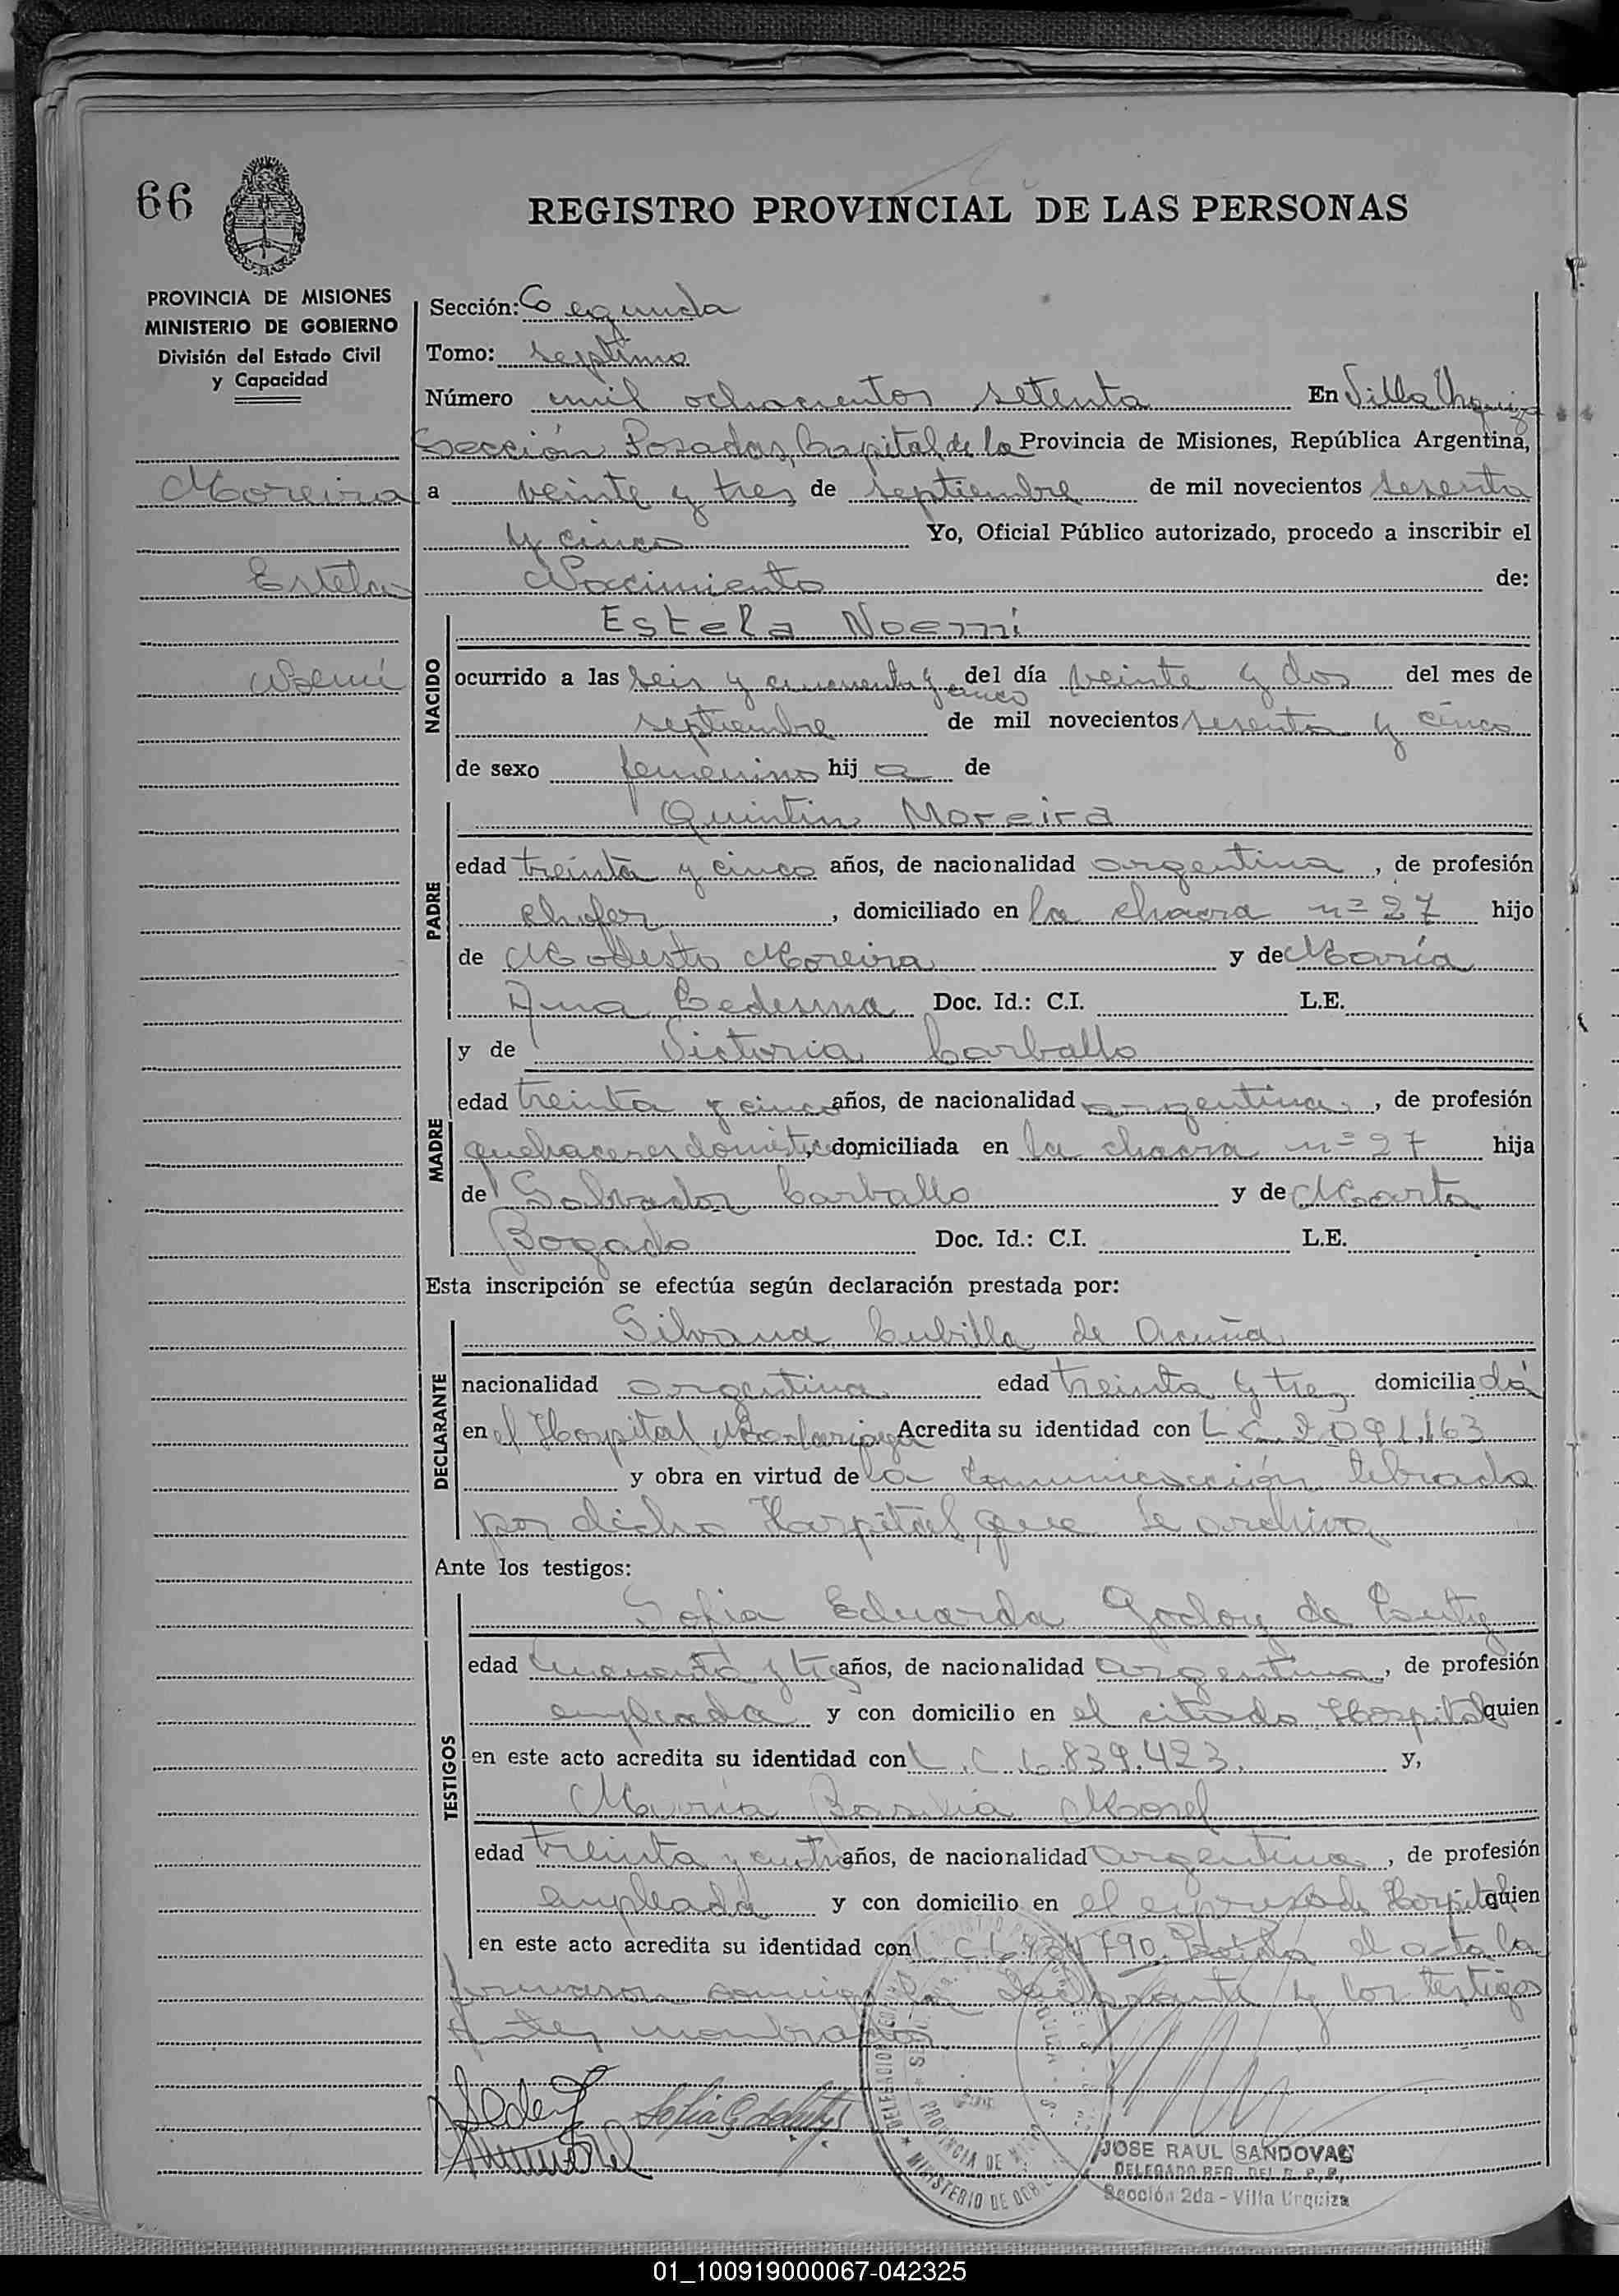 66
REGISTRO PROVINCIAL DE LAS PERSONAS
PROVINCIA DE MISIONES
MINISTERIO DE GOBIERNO
División del Estado Civil
y Capacidad
Moreira
Estela
Noemí
Sección: Segunda
Tomo: septimo
Número mil ochocientos setenta En Villa Urquiza
Sección Posadas, Capital de la Provincia de Misiones, República Argentina,
a veinte y tres de septiembre de mil novecientos sesenta
y cinco Yo, Oficial Público autorizado, procedo a inscribir el
Nacimiento de:
NACIDO
Estela Noemí
ocurrido a las seis y cincuenta y cinco del día veinte y dos del mes de
septiembre de mil novecientos sesenta y cinco
de sexo femenino hij a de
PADRE
Quintin Moreira
edad treinta y cinco años, de nacionalidad argentina, de profesión
chofer, domiciliado en la chacra nº 27 hijo
de Modesto Moreira y de María
Ana Ledesma Doc. Id.: C.I. L.E.
MADRE
y de Victoria Carballo
edad treinta y cinco años, de nacionalidad argentina, de profesión
quehaceres domést, domiciliada en la chacra nº 27 hija
de Salvador Carballo y de Marta
Bogado Doc. Id.: C.I. L.E.
Esta inscripción se efectúa según declaración prestada por:
DECLARANTE
Silvana Cubilla de Acuña
nacionalidad argentina edad treinta y tres domicilia da
en el Hospital Madariaga Acredita su identidad con L C 2.091.163
y obra en virtud de la comunicación librada
por dicho Hospital, que se archiva
Ante los testigos:
TESTIGOS
Sofia Eduarda Godoy de
edad cuarenta y tres años, de nacionalidad argentina, de profesión
empleada y con domicilio en el citado Hospital quien
en este acto acredita su identidad con L. C 6.839.423. y,
María Basilia Morel
edad treinta y cuatro años, de nacionalidad argentina, de profesión
empleada y con domicilio en el expresado Hospital quien
en este acto acredita su identidad con L C el acta la
firmaron conmigo la declarante y los testigos
antes nombrados
JOSE RAUL SANDOVAL
DELEGADO REG. DEL R. P. P.
Sección 2da - Villa Urquiza
PROVINCIA DE
MINISTERIO DE GOB
01_100919000067-042325